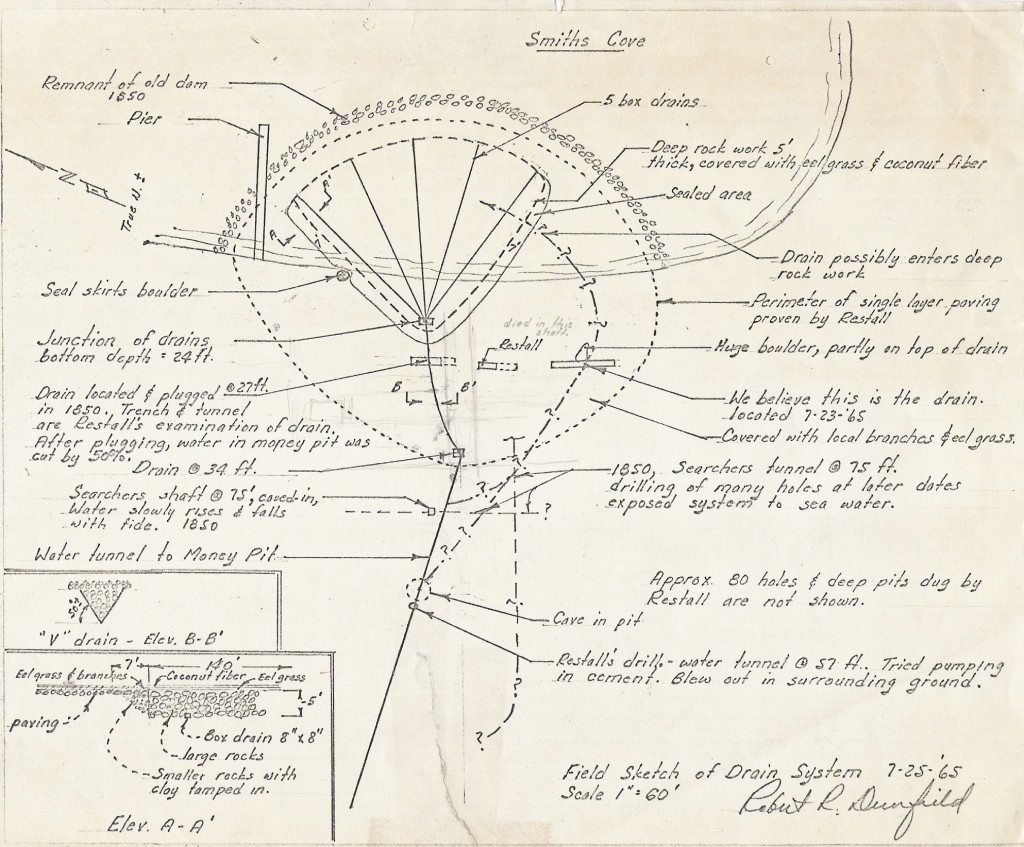 Smiths Cove
Remnant of old dam
1850
Pier
5 box drains
Deep rock work 5'
thick, covered with eel grass & coconut fiber
Sealed area
N
True N. ±
A
A'
Drain possibly enters deep
rock work
Seal skirts boulder
Perimeter of single layer paving
proven by Restall
Junction of drains
bottom depth = 24 ft.
died in this
shaft.
Restall
Huge boulder, partly on top of drain
Drain located & plugged @ 27 ft.
in 1850. Trench & tunnel
are Restall's examination of drain.
After plugging, water in money pit was
cut by 50%.
B B'
We believe this is the drain.
located 7-23-'65
Covered with local branches & eel grass.
Drain @ 54 ft.
1850, Searchers tunnel @ 75 ft.
drilling of many holes at later dates
exposed system to sea water.
Searchers shaft @ 75', caved-in,
Water slowly rises & falls
with tide. 1850
?
?
?
?
?
?
?
?
?
Water tunnel to Money Pit
Approx. 80 holes & deep pits dug by
Restall are not shown.
Cave in pit
Restall's drill - water tunnel @ 57 ft. Tried pumping
in cement. Blew out in surrounding ground.
?
"V" drain - Elev. B-B'
7' 140'
Eel grass & branches Coconut fiber Eel grass
5'
paving
Box drain 8" x 8"
large rocks
Smaller rocks with
clay tamped in.
Elev. A-A'
Field Sketch of Drain System 7-25-'65
Scale 1" = 60'
Robert R. Dunfield